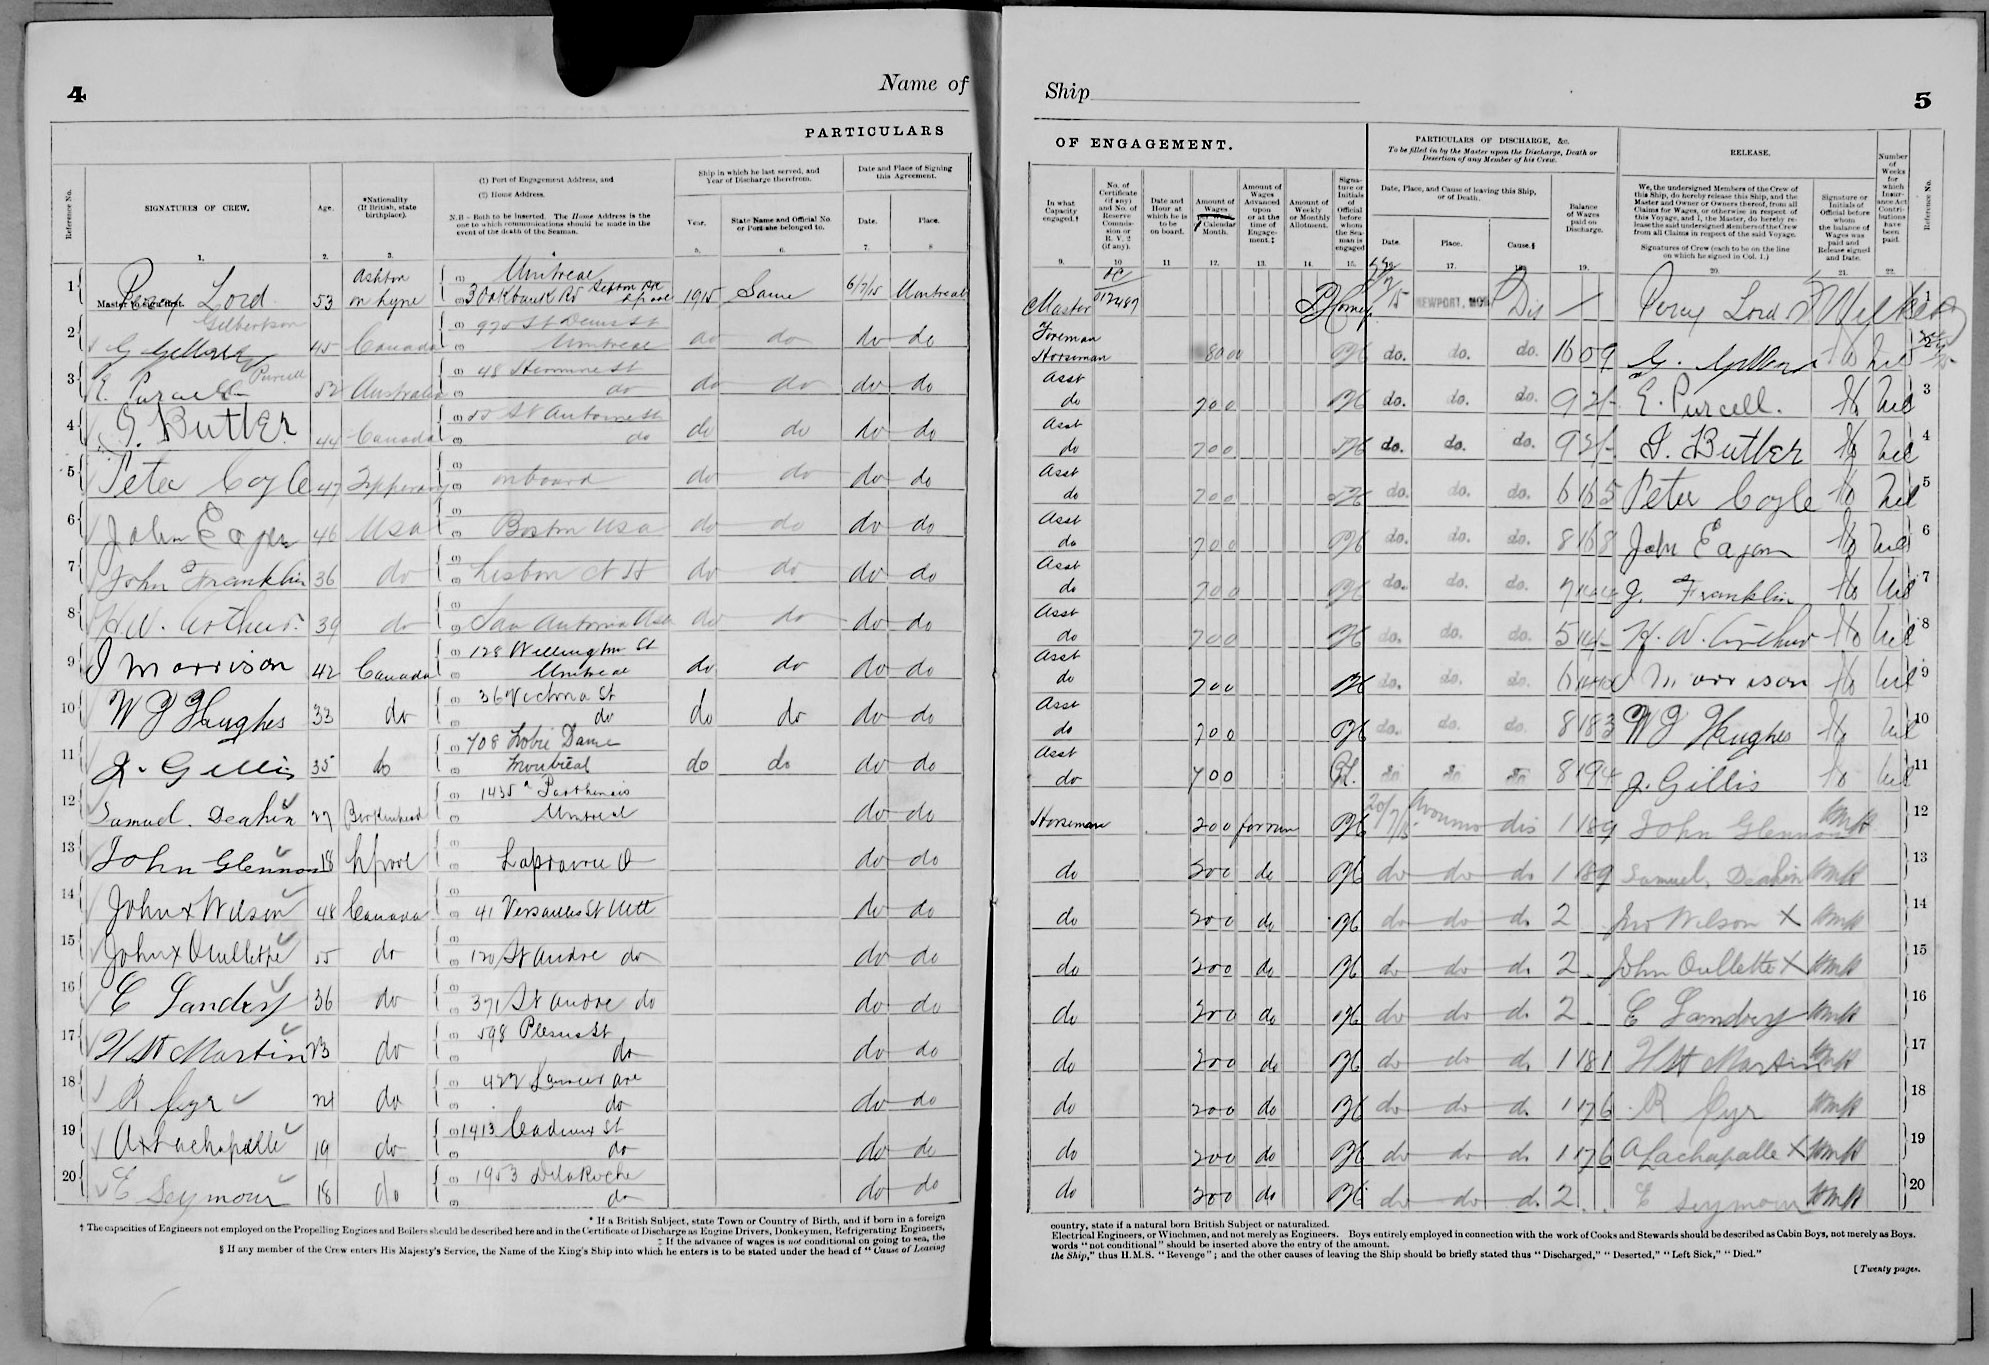 4
Name of
PARTICULARS
Reference No.
SIGNATURES OF CREW.
Age.
*Nationality (If British, state birthplace).
(1) Port of Engagement Address, and
(2) Home Address.
N.B - Both to be inserted. The Home Address is the one to which communications should be made in the event of the death of the Seaman.
Ship in which he last served, and Year of Discharge therefrom.
Year.
State Name and Official No. or Port she belonged to.
Date and Place of Signing this Agreement.
Date.
Place.
1. 2. 3. 4. 5. 6. 7. 8
1 Master to sign first. Percy Lord 53 Ashton on Lyne (1) Montreal (2) 3 Oakbank Rd Sefton Pk Lpool 1915 Same 6/7/15 Montreal
2 G Gilbertson 45 Canada 970 St Denis St Montreal do do do do
3 E. Purcell Purcell 52 Australia 48 Hermine St do do do do do
4 G. Butler 44 Canada St Antoine St do do do do do
5 Peter Coyle 47 Tipperary onboard do do do do
6 John Eagen 46 USA Boston USA do do do do
7 John Franklin 36 do Lisbon do do do do
8 H.W. Arthur 39 do San Antonio USA do do do do
9 J Morrison 42 Canada 128 Wellington St Montreal do do do do
10 W J Hughes 33 do 36 Victoria St do do do do do
11 J. Gillis 35 do 708 Notre Dame Montreal do do do do
12 Samuel. Deakin 27 Birkenhead 1435 Parthenais Montreal do do
13 John Glennon 18 Lpool Laprairie do do
14 John x Wilson 48 Canada 41 Versailles St Mtl do do
15 John x Oullette 55 do 120 St Andre do do do
16 E Landry 36 do 371 St Andre do do do
17 H St Martin 23 do 598 Plesus St do do do
18 R Cyr 21 do 422 Laurier Ave do do do
19 A x Lachapelle 19 do 1413 Cadieux St do do do
20 E Seymour 18 do 1953 DelaRoche do do do
* If a British Subject, state Town or Country of Birth, and if born in a foreign
† The capacities of Engineers not employed on the Propelling Engines and Boilers should be described here and in the Certificate of Discharge as Engine Drivers, Donkeymen, Refrigerating Engineers,
‡ If the advance of wages is not conditional on going to sea, the
§ If any member of the Crew enters His Majesty's Service, the Name of the King's Ship into which he enters is to be stated under the head of "Cause of Leaving
Ship
5
OF ENGAGEMENT.
PARTICULARS OF DISCHARGE, &c.
To be filled in by the Master upon the Discharge, Death or Desertion of any Member of his Crew.
RELEASE.
In what Capacity engaged.†
No. of Certificate (if any) and No. of Reserve Commission or R. V. 2 (if any).
Date and Hour at which he is to be on board.
Amount of Wages Calendar Month.
Amount of Wages Advanced upon or at the time of Engagement.‡
Amount of Weekly or Monthly Allotment.
Signature or Initials of Official before whom the Seaman is engaged
Date, Place, and Cause of leaving this Ship, or of Death.
Date.
Place.
Cause.§
Balance of Wages paid on Discharge.
We, the undersigned Members of the Crew of this Ship, do hereby release this Ship, and the Master and Owner or Owners thereof, from all Claims for Wages, or otherwise in respect of this Voyage, and I, the Master, do hereby release the said undersigned Members of the Crew from all Claims in respect of the said Voyage.
Signatures of Crew (each to be on the line on which he signed in Col. 1.)
Signature or Initials of Official before whom the balance of Wages was paid and Release signed and Date.
Number of Weeks for which Insurance Act Contributions have been paid.
Reference No.
9. 10 11 12. 13. 14. 15. 16. 17. 18. 19. 20. 21. 22.
Master 012487 NEWPORT, MON Dis Percy Lord
Foreman Horseman 8000 do. do. do. 1609 Nil
Asst do 700 do. do. do. 92/- E. Purcell. Nil 3
Asst do 700 do. do. do. 92/- G. Butler Nil 4
Asst do 700 do. do. do. 6165 Peter Coyle Nil 5
Asst do 700 do. do. do. 8168 John Eagen Nil 6
Asst do 700 do. do. do. J. Franklin Nil 7
Asst do 700 do. do. do. H. W. Arthur Nil 8
Asst do 700 do. do. do. J Morrison Nil 9
Asst do 700 do. do. do. 8183 W J Hughes Nil 10
Asst do 700 do do do 8194 J. Gillis Nil 11
Horseman 200 for run 20/7/15 Avonmo dis 1189 John Glennon 12
do 200 do do do do 1189 Samuel. Deakin 13
do 200 do do do do 2 Jno Wilson X 14
do 200 do do do do 2 John Oullette X 15
do 200 do do do do 2 E Landry 16
do 200 do do do do 1181 H St Martin 17
do 200 do do do do 1176 R Cyr 18
do 200 do do do do 1176 A Lachapalle X 19
do 200 do do do do 2 E Seymour 20
country, state if a natural born British Subject or naturalized.
Electrical Engineers, or Winchmen, and not merely as Engineers. Boys entirely employed in connection with the work of Cooks and Stewards should be described as Cabin Boys, not merely as Boys.
words "not conditional" should be inserted above the entry of the amount.
the Ship," thus H.M.S. "Revenge"; and the other causes of leaving the Ship should be briefly stated thus "Discharged," "Deserted," "Left Sick," "Died."
[Twenty pages.